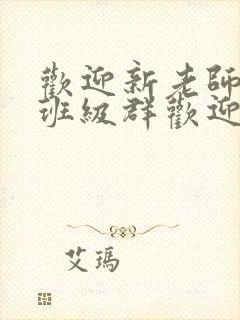 歡迎新老師
班級群歡迎
艾瑪